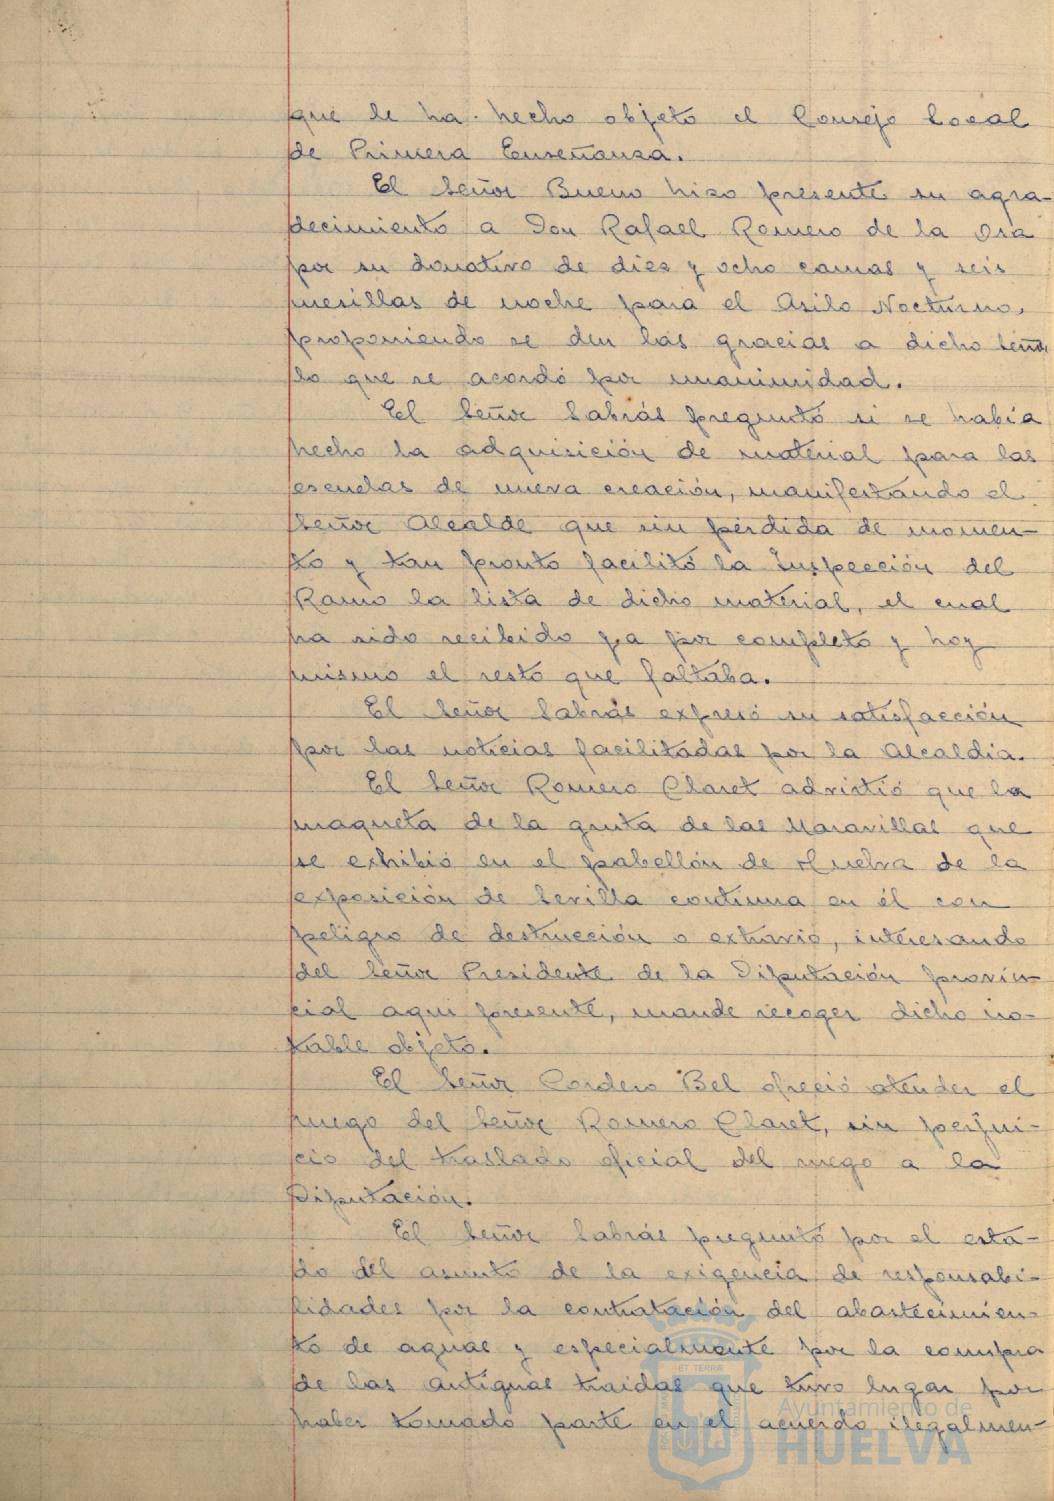 que le ha hecho objeto el Consejo Local
de Primera Enseñanza.
El Señor Bueno hizo presente su agra-
decimiento a Don Rafael Romero de la Osa
por su donativo de diez y ocho camas y seis
mesillas de noche para el Asilo Nocturno,
proponiendo se den las gracias a dicho Señor
lo que se acordó por unanimidad.
El Señor Sabrás preguntó si se había
hecho la adquisición de material para las
escuelas de nueva creación, manifestando el
Señor Alcalde que sin pérdida de momen-
to y tan pronto facilitó la Inspección del
Ramo la lista de dicho material, el cual
ha sido recibido ya por completo y hoy
mismo el resto que faltaba.
El Señor Sabrás expresó su satisfacción
por las noticias facilitadas por la Alcaldía.
El Señor Romero Claret advirtió que la
maqueta de la gruta de las Maravillas que
se exhibió en el pabellón de Huelva de la
exposición de Sevilla continua en él con
peligro de destrucción o extravio, interesando
del Señor Presidente de la Diputación provin-
cial aqui presente, mande recoger dicho no-
table objeto.
El Señor Cordero Bel ofreció atender el
ruego del Señor Romero Claret, sin perjui-
cio del traslado oficial del ruego a la
Diputación.
El Señor Sabrás preguntó por el esta-
do del asunto de la exigencia de responsabi-
lidades por la contratación del abastecimien-
to de aguas y especialmente por la compra
de las antiguas traidas que tuvo lugar por
haber tomado parte en el acuerdo ilegalmen-
ET TERRÆ
Ayuntamiento de
HUELVA